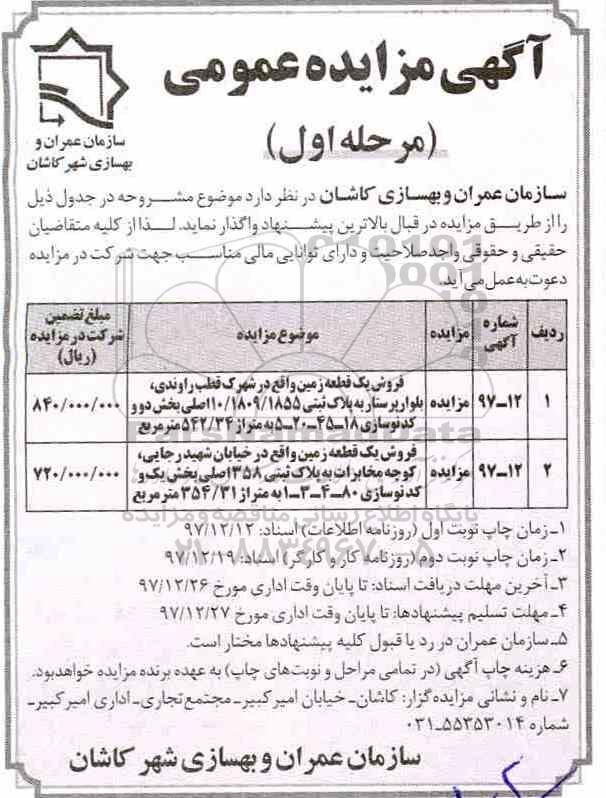 آگهی مزایده عمومی
(مرحله اول)
سازمان عمران و
بهسازی شهر کاشان
سازمان عمران و بهسازی کاشان در نظر دارد موضوع مشروحه در جدول ذیل
را از طریق مزایده در قبال بالاترین پیشنهاد واگذار نماید. لذا از کلیه متقاضیان
حقیقی و حقوقی واجد صلاحیت و دارای توانایی مالی مناسب جهت شرکت در مزایده
دعوت به عمل می آید.
ردیف شماره آگهی مزایده موضوع مزایده مبلغ تضمین شرکت در مزایده (ریال)
۱ ۱۲-۹۷ مزایده فروش یک قطعه زمین واقع در شهرک قطب راوندی،
بلوار پرستار به پلاک ثبتی ۱۱۰/۱۸۰۹/۱۸۵۵اصلی بخش دو و
کد نوسازی ۱۸-۴۵-۲۰-۵ به متراژ ۵۴۲/۳۴ مترمربع ۸۴۰/۰۰۰/۰۰۰
۲ ۱۲-۹۷ مزایده فروش یک قطعه زمین واقع در خیابان شهید رجایی،
کوچه مخابرات به پلاک ثبتی ۱۳۵۸ اصلی بخش یک و
کد نوسازی ۸۰-۴-۳-۱ به متراژ ۳۵۴/۳۱ مترمربع ۷۲۰/۰۰۰/۰۰۰
۱-زمان چاپ نوبت اول (روزنامه اطلاعات) اسناد: ۹۷/۱۲/۱۲
۲-زمان چاپ نوبت دوم (روزنامه کار و کارگر) اسناد: ۹۷/۱۲/۱۹
۳-آخرین مهلت دریافت اسناد: تا پایان وقت اداری مورخ ۹۷/۱۲/۲۶
۴-مهلت تسلیم پیشنهادها: تا پایان وقت اداری مورخ ۹۷/۱۲/۲۷
۵-سازمان عمران در رد یا قبول کلیه پیشنهادها مختار است.
۶-هزینه چاپ آگهی (در تمامی مراحل و نوبت‌های چاپ) به عهده برنده مزایده خواهد بود.
۷-نام و نشانی مزایده گزار: کاشان-خیابان امیرکبیر-مجتمع تجاری-اداری امیرکبیر-
شماره ۵۵۳۵۳۰۱۴-۰۳۱
سازمان عمران و بهسازی شهر کاشان
ParsNamadData
پایگاه اطلاع رسانی مناقصه و مزایده
۰۲۱-۸۸۳۴۹۶۷۰-۵